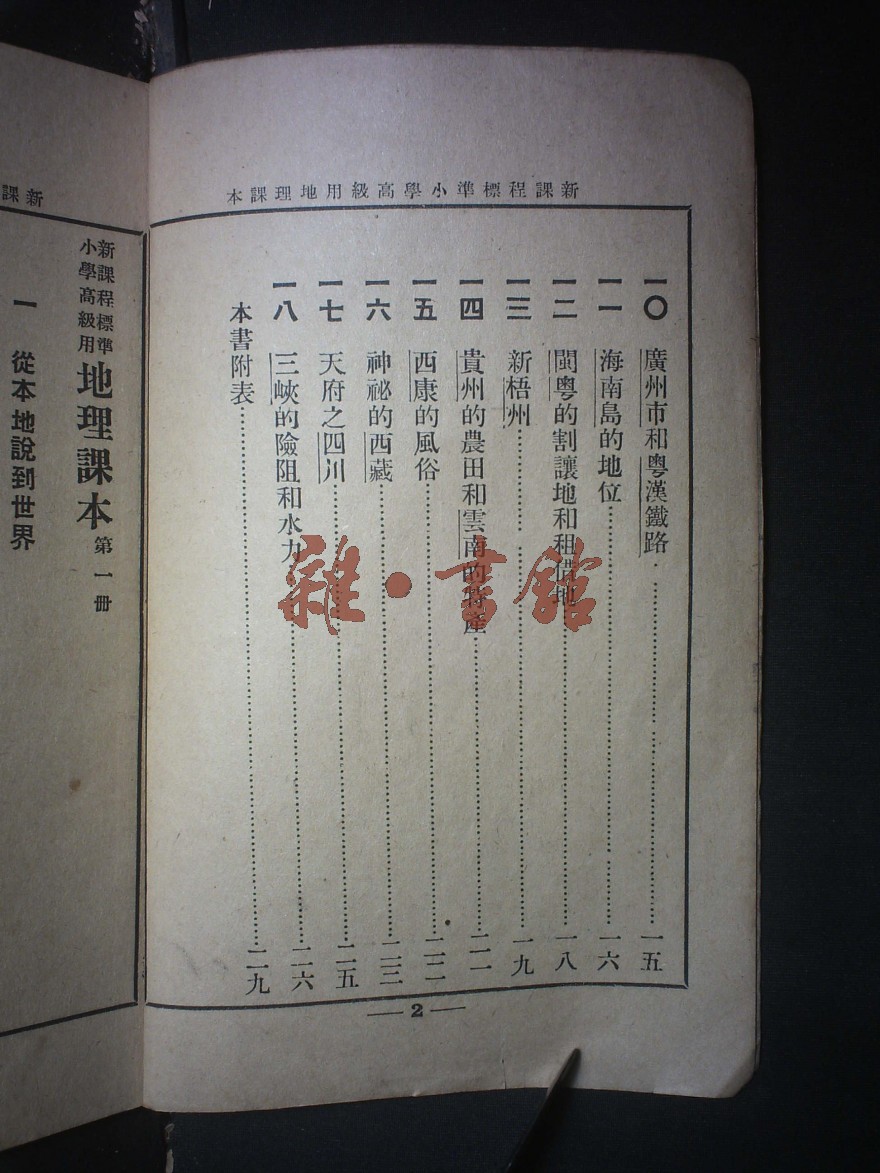 新課程標準小學高級用地理課本
一〇 廣州市和粵漢鐵路……一五
一一 海南島的地位……一六
一二 閩粵的割讓地和租借地……一八
一三 新梧州……一九
一四 貴州的農田和雲南的特產……二一
一五 西康的風俗……二二
一六 神祕的西藏……二三
一七 天府之四川……二五
一八 三峽的險阻和水力……二六
本書附表……二九
— 2 —
雜·書館
新課
新課程標準
小學高級用
地理課本 第一冊
一 從本地說到世界